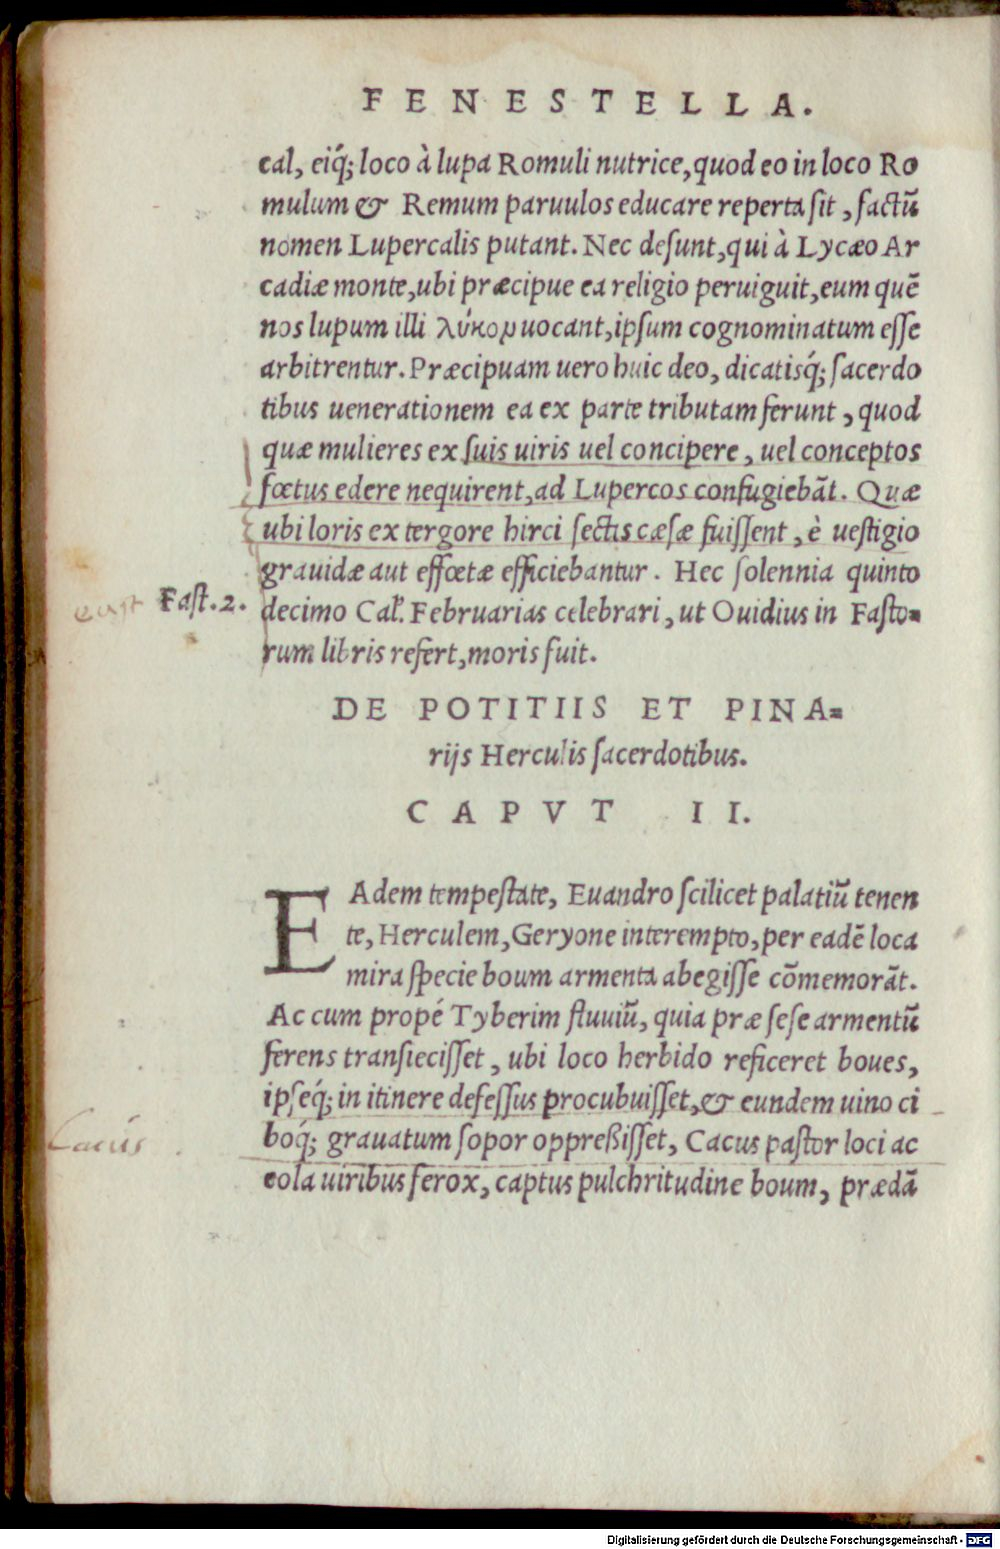 FENESTELLA.
cal, eiq́; loco à lupa Romuli nutrice, quod eo in loco Ro
mulum & Remum paruulos educare reperta sit, factũ
nomen Lupercalis putant. Nec desunt, qui à Lycæo Ar
cadiæ monte, ubi præcipue ea religio peruiguit, eum quẽ
nos lupum illi λύκον uocant, ipsum cognominatum esse
arbitrentur. Præcipuam uero huic deo, dicatisq́; sacerdo
tibus uenerationem ea ex parte tributam ferunt, quod
quæ mulieres ex suis uiris uel concipere, uel conceptos
fœtus edere nequirent, ad Lupercos confugiebãt. Quæ
ubi loris ex tergore hirci sectis cæsæ fuissent, è uestigio
grauidæ aut effœtæ efficiebantur. Hec solennia quinto
Fast. 2.
decimo Cal. Februarias celebrari, ut Ouidius in Fasto=
rum libris refert, moris fuit.
DE POTITIIS ET PINA=
rijs Herculis sacerdotibus.
CAPVT II.
EAdem tempestate, Euandro scilicet palatiũ tenen
te, Herculem, Geryone interempto, per eadẽ loca
mira specie boum armenta abegisse cõmemorãt.
Ac cum propé Tyberim fluuiũ, quia præ sese armentũ
ferens transiecisset, ubi loco herbido reficeret boues,
ipseq́; in itinere defessus procubuisset, & eundem uino ci
Cacus
boq́; grauatum sopor oppreßisset, Cacus pastor loci ac
cola uiribus ferox, captus pulchritudine boum, prædã
Digitalisierung gefördert durch die Deutsche Forschungsgemeinschaft - DFG